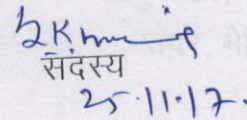 सदस्य
25.11.17.